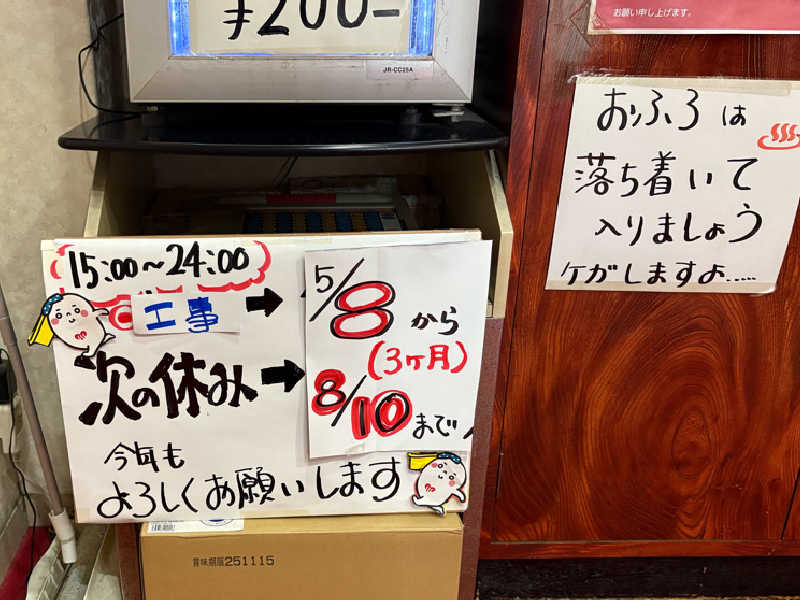 ¥200-
JR-CC25A
お願い申し上げます。
おふろは
落ち着いて
入りましょう
ケガしますよ.....
15:00~24:00
工事→
5/8から
(3ヶ月)
次の休み→
8/10まで
今年も
よろしくお願いします
賞味期限251115